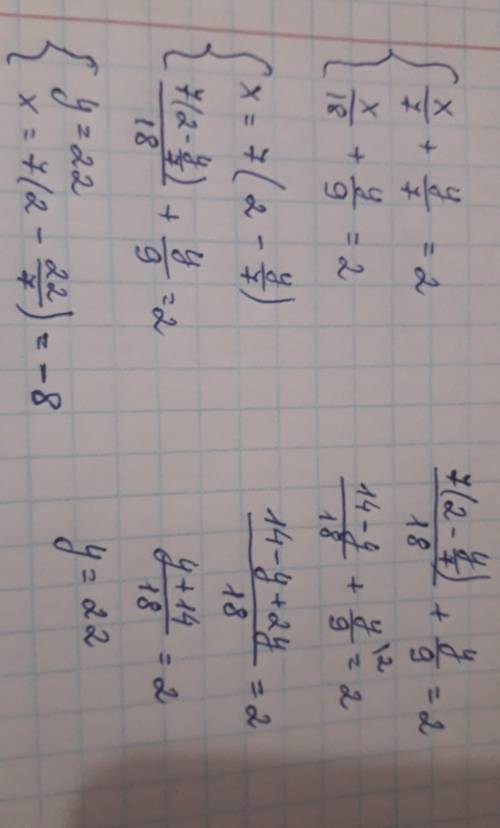 x/7 + y/7 = 2
x/18 + y/9 = 2
x = 7(2 - y/7)
7(2 - y/7)/18 + y/9 = 2
y = 22
x = 7(2 - 22/7) = -8
7(2 - y/7)/18 + y/9 = 2
14 - y/18 + y/9 \2 = 2
14 - y + 2y/18 = 2
y + 14/18 = 2
y = 22